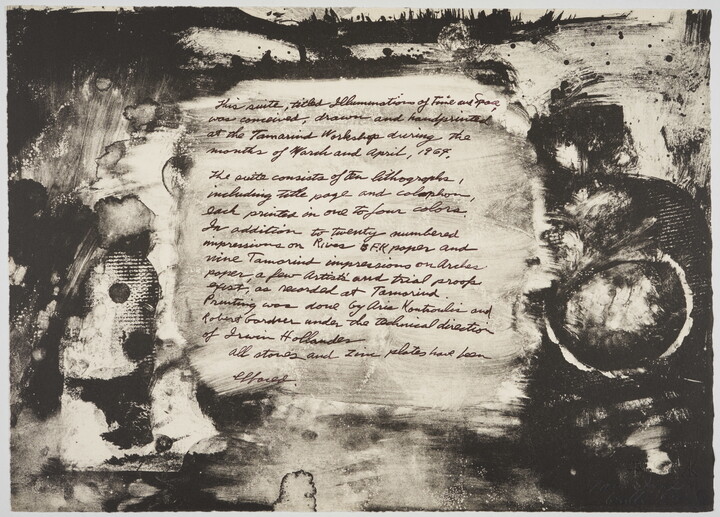 This suite, titled Illuminations of Time and Space
was conceived, drawn and handprinted
at the Tamarind Workshop during the
months of March and April, 1964.
The suite consists of ten lithographs,
including title page and colophon,
each printed in one to four colors.
In addition to twenty numbered
impressions on Rives BFK paper and
nine Tamarind impressions on Arches
paper a few Artists' and trial proofs
exist, as recorded at Tamarind.
Printing was done by and
Robert Gardner under the technical direction
of Irwin Hollander
all stones and zinc plates have been
effaced.